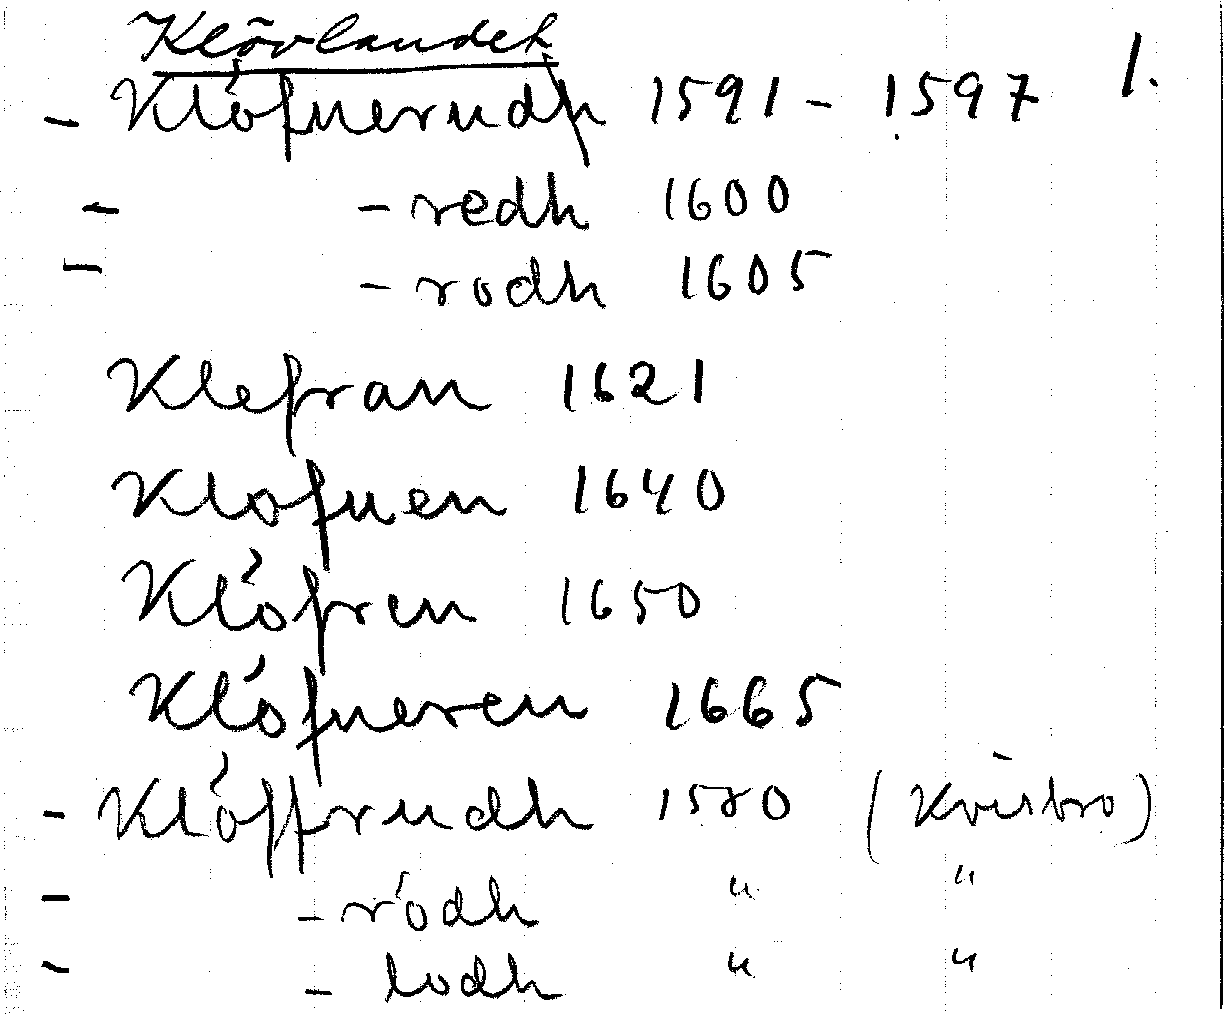 Klövlandet
- Klófnerudh 1591 - 1597 1.
- - redh 1600
- - rodh 1605
Klefran 1621
Klofuen 1640
Klófren 1650
Klófneren 1665
- Klóffrudh 1580 (Kvisbro)
- - ródh " "
- - lodh " "